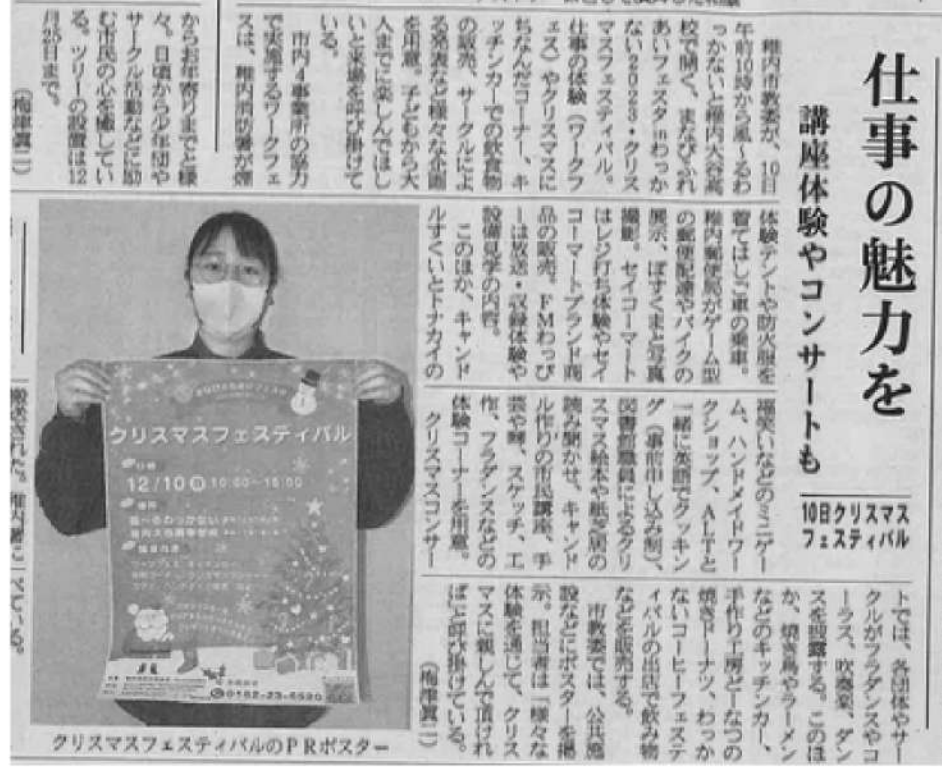 仕事の魅力を
講座体験やコンサートも
10日クリスマス
フェスティバル
稚内市教委が、10日
午前10時から風〜るわ
っかないと稚内大谷高
校で開く、まなびふれ
あいフェスタinわっか
ない2023・クリス
マスフェスティバル。
仕事の体験（ワークフ
ェス）やクリスマスに
ちなんだコーナー、キ
ッチンカーでの飲食物
の販売、サークルによ
る発表など様々な企画
を用意。子どもから大
人までに楽しんでほし
いと来場を呼び掛けて
いる。
市内4事業所の協力
で実施するワークフェ
スは、稚内消防署が煙
体験テントや防火服を
着てはしご車の乗車。
稚内郵便局がゲーム型
の郵便配達やバイクの
展示、ぽすくまと写真
撮影。セイコーマート
はレジ打ち体験やセイ
コーマートブランド商
品の販売。FMわっぴ
ーは放送・収録体験や
設備見学の内容。
このほか、キャンド
ルすくいとトナカイの
福笑いなどのミニゲー
ム、ハンドメイドワー
クショップ、ALTと
一緒に英語でクッキン
グ（事前申し込み制）、
図書館職員によるクリ
スマス絵本や紙芝居の
読み聞かせ、キャンド
ル作りの市民講座、手
芸や琴、スケッチ、工
作、フラダンスなどの
体験コーナーを用意。
クリスマスコンサー
トでは、各団体やサー
クルがフラダンスやコ
ーラス、吹奏楽、ダン
スを披露する。このほ
か、焼き鳥やラーメン
などのキッチンカー、
手作り工房どーなつの
焼きドーナツ、わっか
ないコーヒーフェステ
ィバルの出店で飲み物
などを販売する。
市教委では、公共施
設などにポスターを掲
示。担当者は「様々な
体験を通じて、クリス
マスに親しんで頂けれ
ば」と呼び掛けている。
（梅津眞二）
からお年寄りまでと様
々。日頃からル年団や
サークル活動などに励
む市民の心を癒してい
る。ツリーの設置は12
月25日まで。
（梅津眞二）
クリスマスフェスティバル
12/10
10:00〜15:00
0162-23-6520
クリスマスフェスティバルのPRポスター